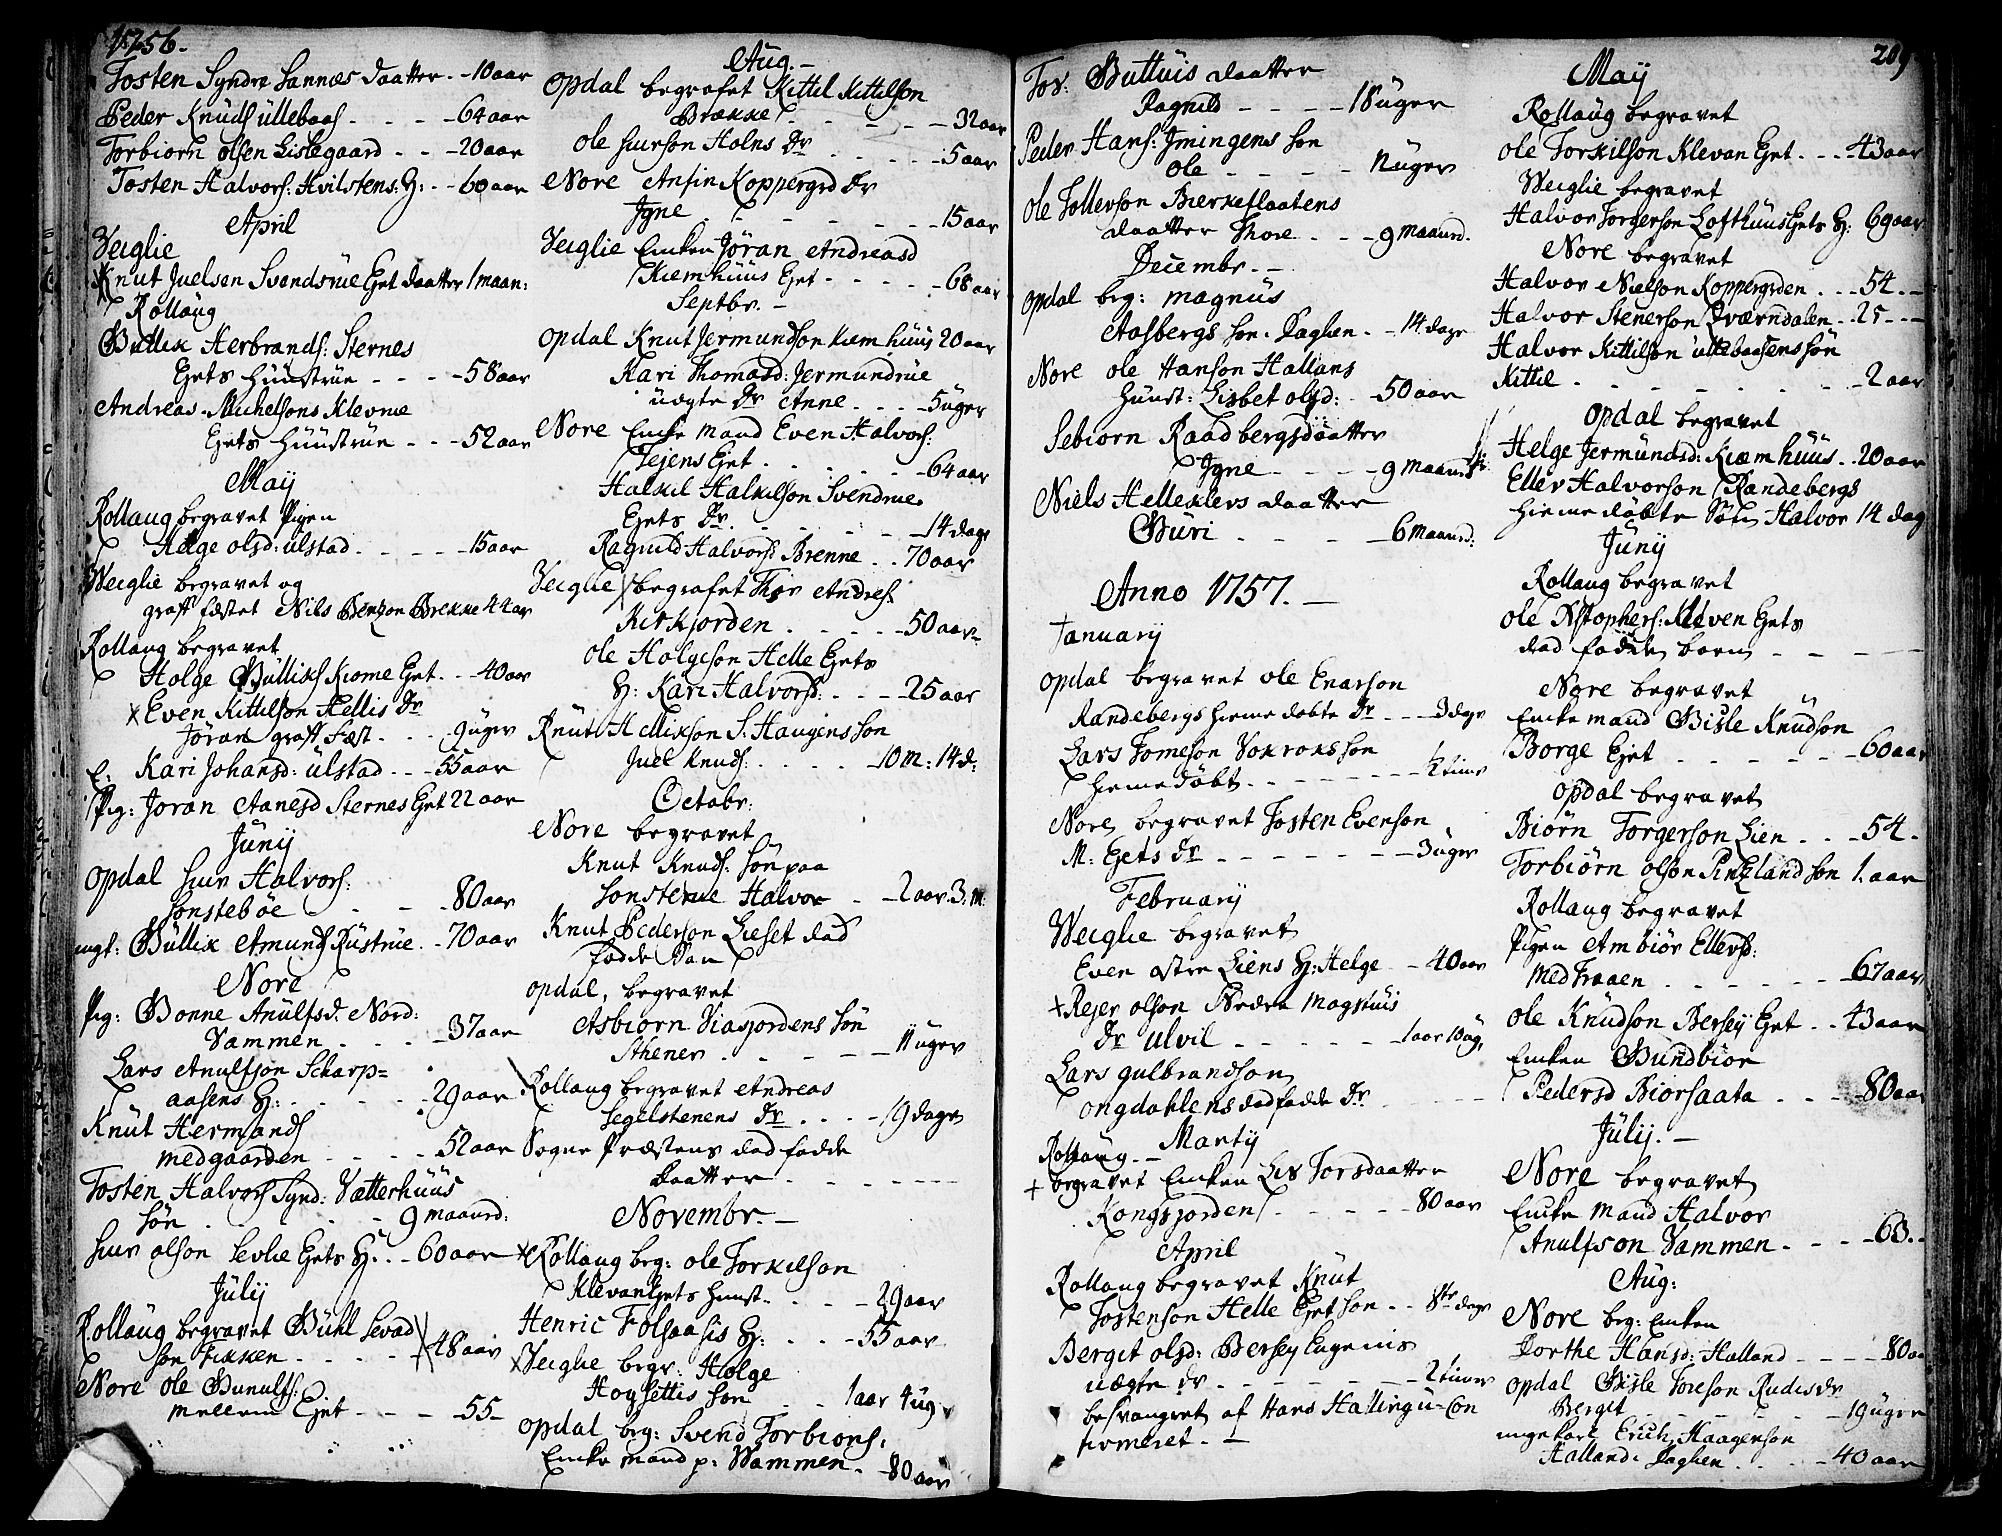 1756.
Tosten Syndre Sannæs daatter - 10 aar
Peder Knuds Ullebaas - - - 64 aar
Torbiørn Olsen Lislegaard - - 20 aar
Tosten Halvors: Hvilstens: H: - - 60 aar
April
Veiglie
Knut Juelsen Svendsrue Eget daatter 1 maan:
Rollaug
Gullik Herbrands: Sternes
Eyets Huustrue - - - 58 aar
Andreas Michelsons Klevene
Eyets Huustrue - - - 52 aar
May
Rollaug begravet Pigen
Helge olsd: ulstad - - - - 15 aar
Weiglie begravet og
graft fæstet Nils Benson Brekke 44 aar
Rollaug begravet
Holge Gulliks Kiome Eyet - - 40 aar
Even Kittilson Hellis Dr
Jøran graft fæst - - - 9 uger
E: Kari Johansd: ulstad - - - 55 aar
Pig: Joran Aanesd Sternes Eyet 22 aar
Junij
Opdal Siur Halvors:
Sønstebøe - - - 80 aar
ungk: Gullik Amunds Rustrue - 70 aar
Nore
Pig: Gonne Anulfsd. Nord:
Vammen - - - 37 aar
Lars Anulfson Scharp=
aasens H: - - - - 29 aar
Knut Hermands
medgaarden - - - - 52 aar
Tosten Halvors Synd: Vatterhuus
Søn - - - - 9 maaned:
Siur olson Sevlie Eyets H: - - 60 aar
Julij
Rollaug begravet Guhl Sevad
søn Fekken - - - - 48 aar
Nore Ole Gunulfs:
mellem Eyet - - - - 55 -
Aug. -
Opdal begrafet Kittil Kittilson
Brække - - - - 32 aar
ole Siurson Holns Dr - - - - 5 aar
Nore Ansin Koppergrd Dr
Igne - - - - - 15 aar
Veiglie Enken Jøran Andreasd
Kiemhuus Eyet - - - - 68 aar
Septbr. -
Opdal Knut Jermundson Kiemhuus 20 aar
Kari Thomasd: Jermundrue
uægte Dr Anne - - - 5 uger
Nore Enke mand Even Halvors:
Tejens Eyet - - - - 64 aar
Halkil Halkilson Svendrue
Eyets Dr. - - - - 14 dage
Ragnild Halvorsd Brenne - - 70 aar
Veiglie begrafet Thor Andres:
Kirkjorden - - - - 50 aar
Ole Holgeson Helle Eyets
H: Kari Halvorsd: - - - 25 aar
Knut Hellikson S: Haugens søn
Juel Knuds: - - - - 10 m: 14 d:
Octobr:
Nore begravet
Knut Knuds: søn paa
Sønsterue Halvor - - 2 aar 3: m:
Knut Pederson Lieset død
fødde Dan
Opdal, begravet
Asbiorn Viasjordens søn
Sthener - - - - - 11 uger
Rollaug begravet Andreas
Segelstenens Dr - - - 19 dage
Sogne Præstens død fødde
Daatter - - - - -
Novembr. -
Rollaug beg: ole Torkilson
Klevan Eyets Hust - - - 29 aar
Henric Folsaasis H: - - - 55 aar
Veiglie begr: Holge
Hoysettis søn - - 1 aar 4 ug
Opdal beg: Svend Torbions:
Enke mand p: Wammen - - 80 aar
209
Tor: Guttuis daatter
Ragnild - - - - 18 uger
Peder Hans: Jmingens søn
Ole - - - - 12 uger
ole Tollevson Bierkeflaatens
daatter Thore - - - 9 maaned.
Decembr. -
Opdal beg: Magnus
Aasbergs søn: Daglen - - 14 dage
Nore ole Hanson Hallans
Hunst: Lisbet olsd: - 50 aar
Sebiorn Raadbergs daatter
Igne - - - - 9 maaned
Niels Helleklevs daatter
Guri - - - - 6 maaned:
Anno 1757. -
January
Opdal begravet ole Enarson
Randebergs hieme døbte Dr - - - 3 dage
Lars Tomeson Vokroks søn
hieme døbt - - - - ½ time
Nore begravet Tosten Evenson
M: Eyets Dr - - - - - 3 uger
February
Weiglie begravet
Even østre Liens H: Helge - 40 aar
Rejer olson Nedre Magnuis
Dr Ulvil - - - - - 1 aar 10 ug,
Lars gulbrandson
Ongdahlens dødfødde Dr - - - -
Rollaug. - Martij
begravet Enken Lis Torsdaatter
Kongsjorden - - - - 80 aar
April
Rollaug begravet Knut
Tostenson Helle Eyet søn - - 8te dage
Bergit olsd: Bersey Eugenis
uægte Dr - - - - - 2 timer
besvangret af Hans Halling u-con
firmeret. -
May
Rollaug begravet
ole Torkilson Klevan Eyet - - - 43 aar
Weiglie begravet
Halvor Torgerson Lofthuus Eyets H: 69 aar
Nore begravet
Halvor Nielson Koppergrden - - - 54 -
Halvor Stenerson Qværndalen - 25 - -
Halvor Kittilson ullebaasens søn
Kittil - - - - - - - 2 aar
Opdal begravet
Helge Jermundsd: Kiæmhuus - 20 aar
Ellev Halvorson Randebergs
Hieme døbte Søn Halvor 14 dag
Junij
Rollaug begravet
Ole Xstophers: Kleven Eyets
død fødde barn - - - -
Nore begravet
Enke mand Gisle Knudson
Borge Eyet - - - - - 60 aar
Opdal begravet
Biørn Torgerson Lien - - - 54 -
Torbiørn olson Penzland søn 1. aar
Rollaug begravet
Pigen Ambior Ellevsd:
Medtraaen - - - - - 67 aar
Ole Knudson Bersey Eyet - - 43 aar
Enken Gundbior
Pedersd Biorsaata - - - 80 aar
Julij. -
Nore begravet
Enke mand Halvor
Anulfson Vammen - - - 63 -
Aug:
Nore beg: Enken
Dorthe Hansd: Halland - - - - 80 aa
Opdal Gisle Toreson Rudis Dr
Bergit - - - - - 19 uger
unge karl Erich Haagenson
Halland: Daglen - - - - 40 aar